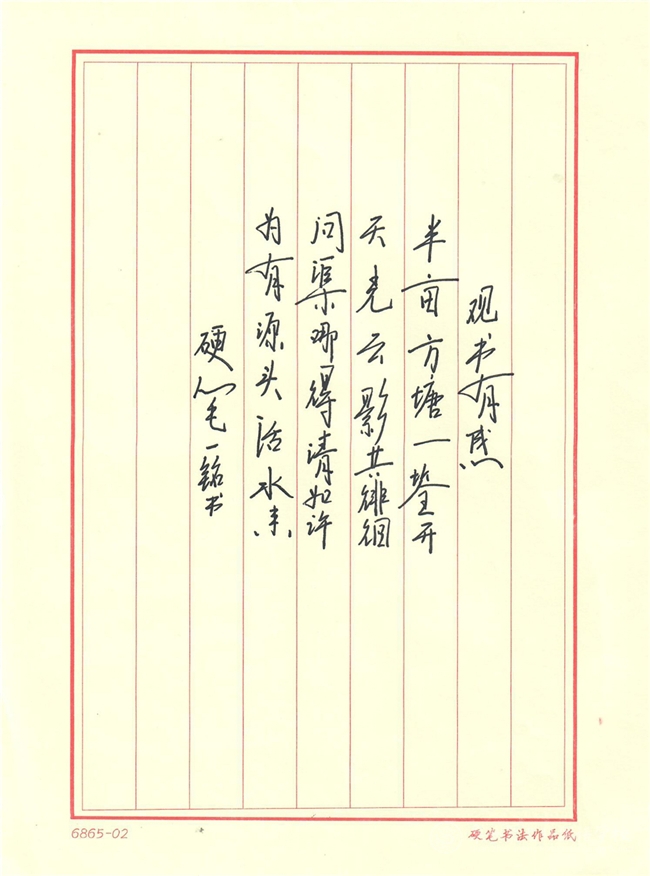 观书有感
半亩方塘一鉴开
天光云影共徘徊
问渠哪得清如许
为有源头活水来
硬笔一铭书
6865-02
硬笔书法作品纸